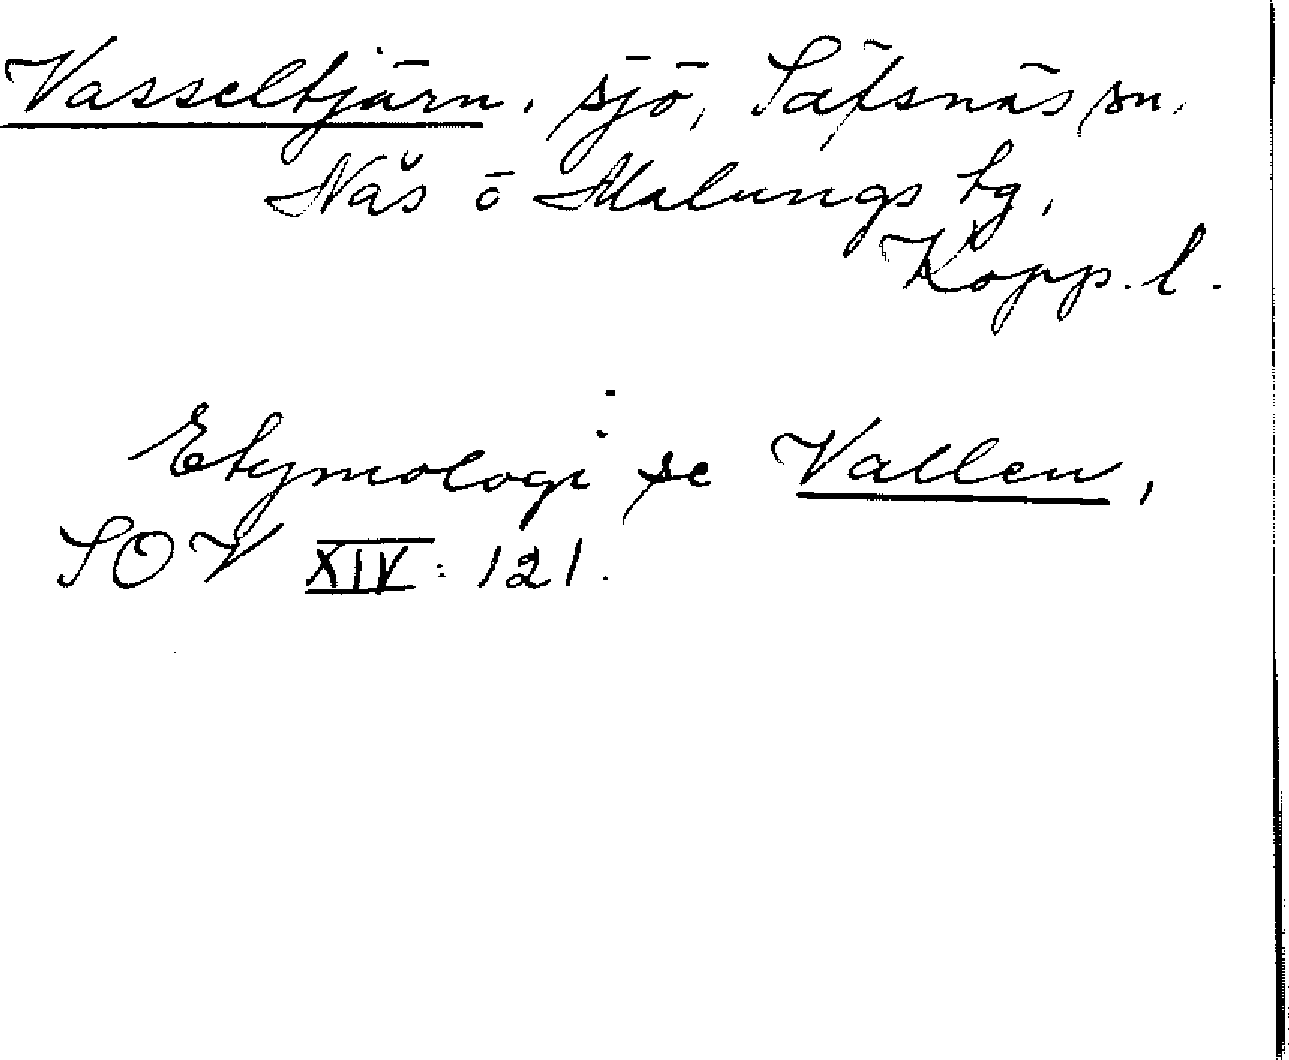 Vasseltjärn, sjö, Säfsnäs sn,
Nås o Malungs tg,
Kopp. l.
Etymologi se Vallen,
SOV XIV: 121.